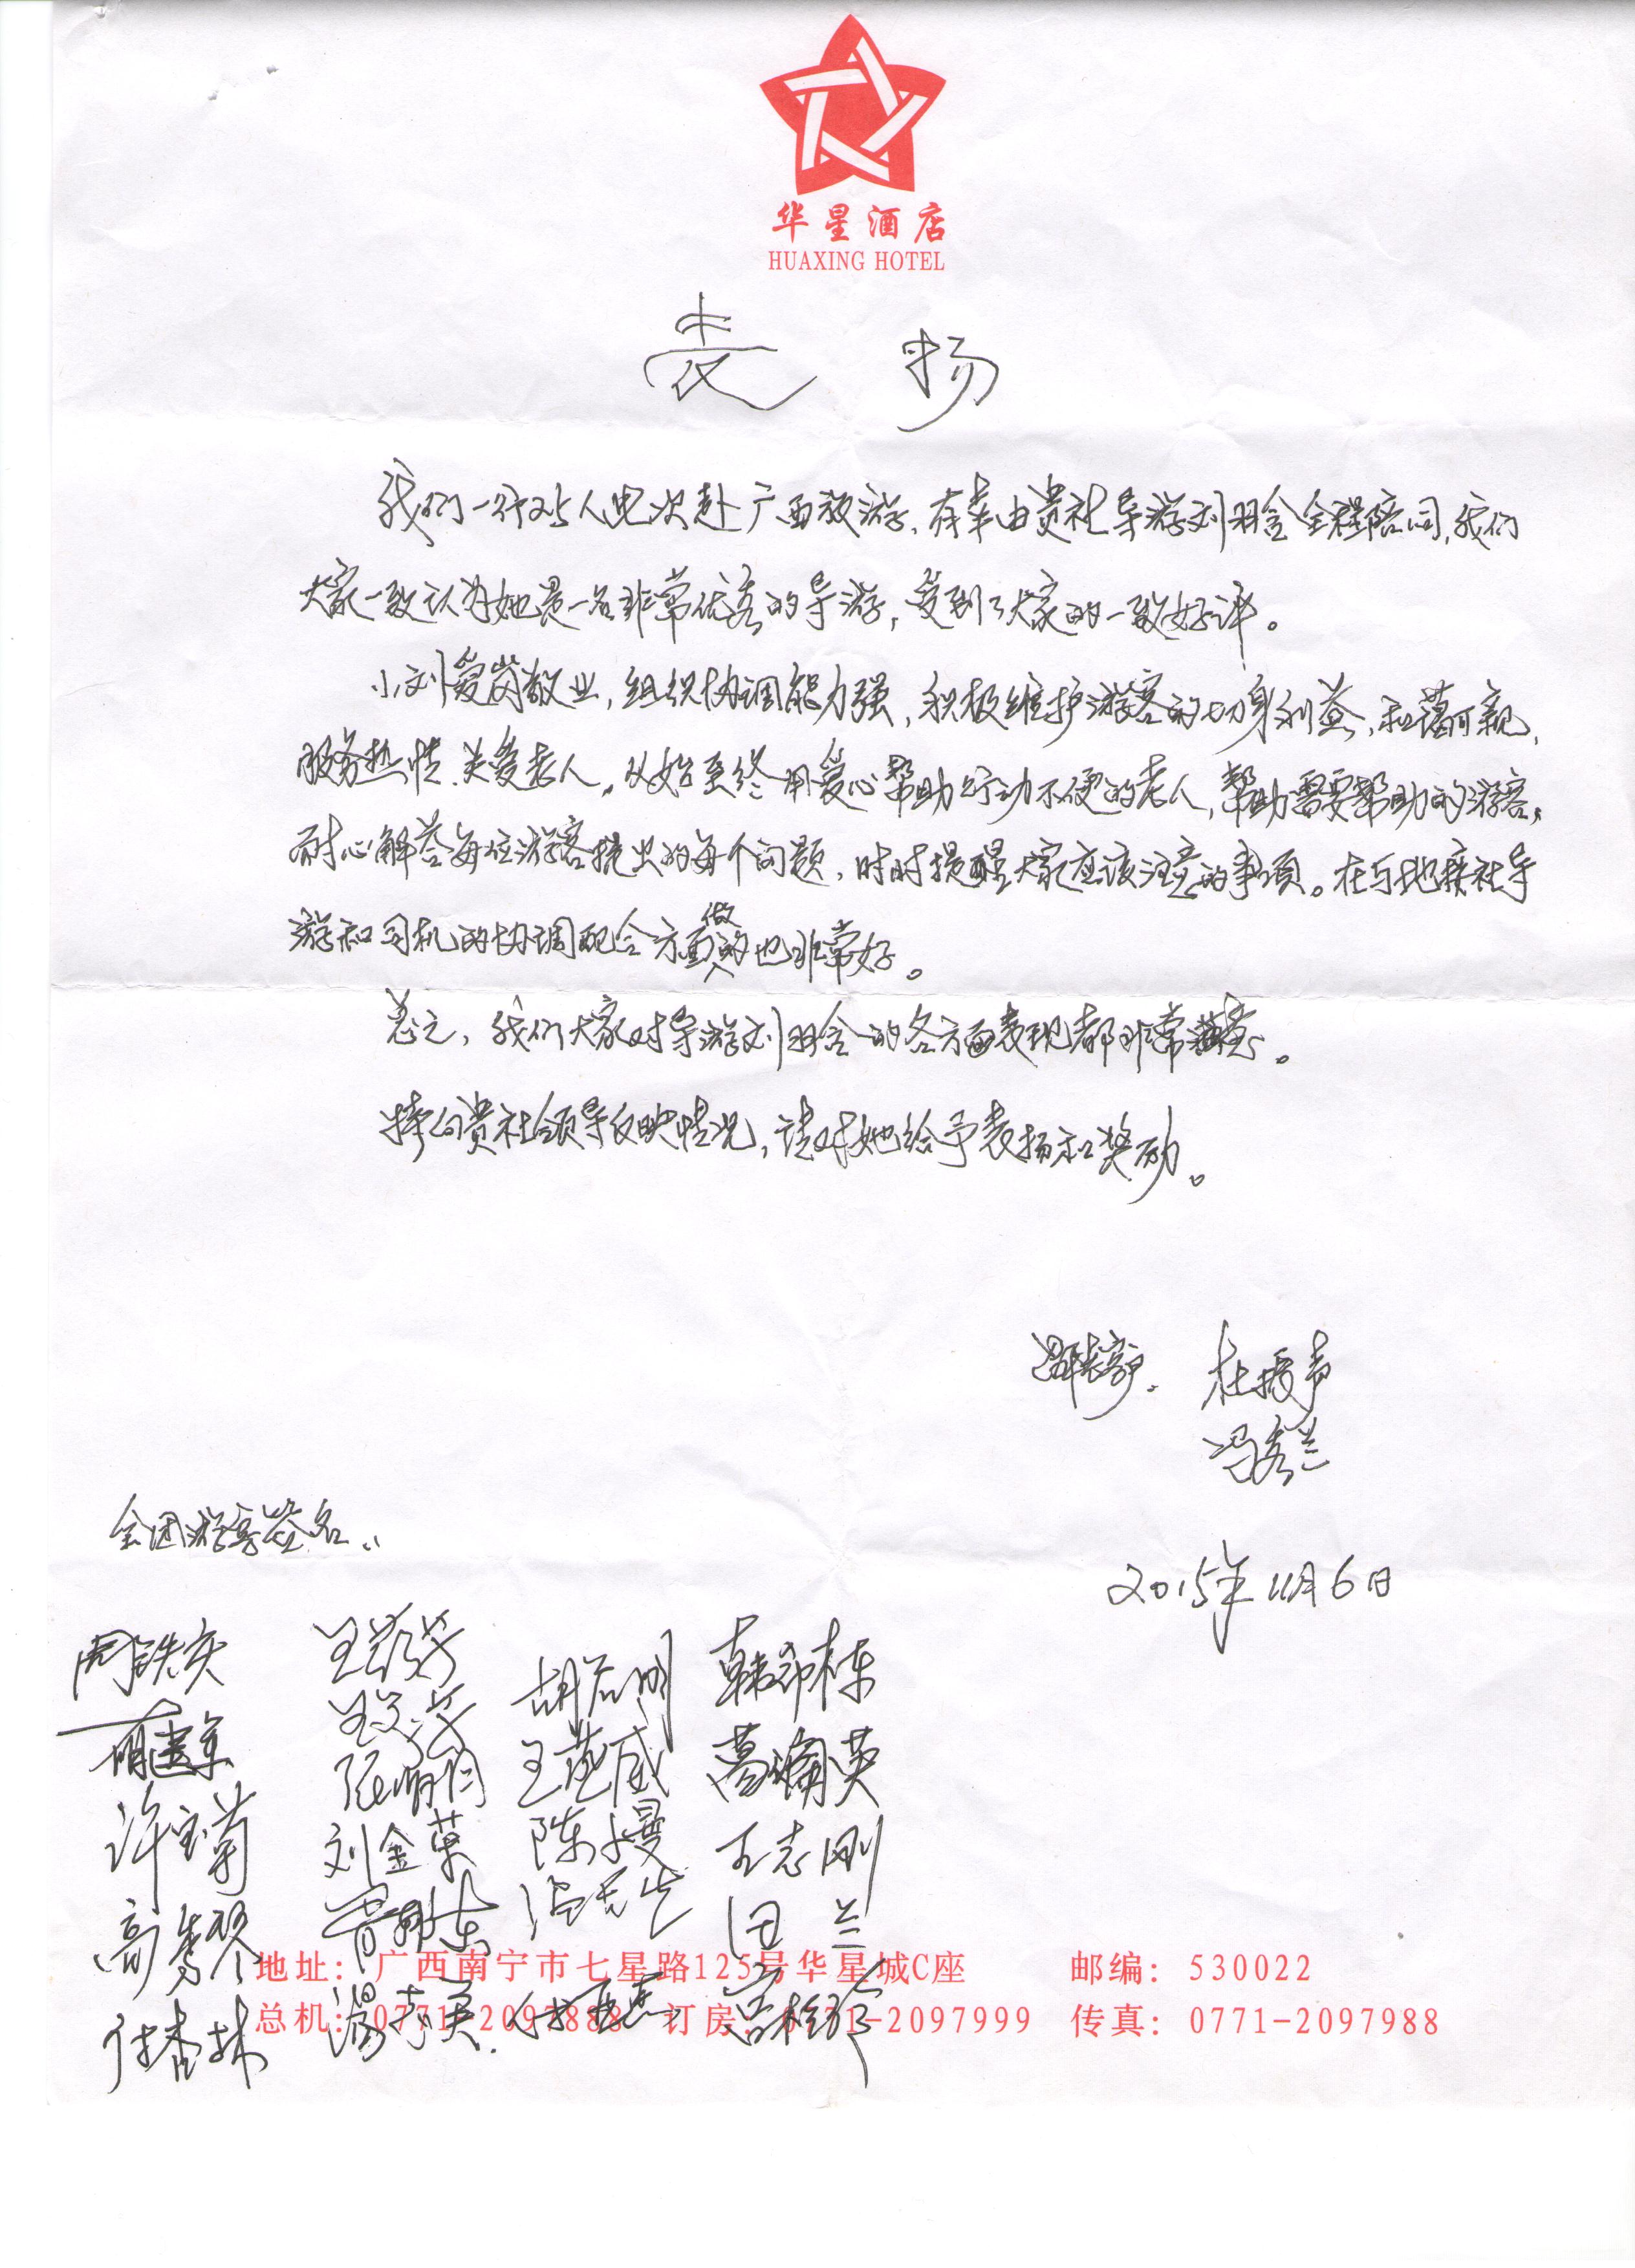 华星酒店
HUAXING HOTEL
表扬
我们一行25人此次赴广西旅游,有幸由贵社导游刘羽含全程陪同,我们
大家一致认为她是一名非常优秀的导游,受到了大家的一致好评。
小刘爱岗敬业,组织协调能力强,积极维护游客的切身利益,和蔼可亲,
服务热情、关爱老人。从始至终用爱心帮助行动不便的老人,帮助需要帮助的游客,
耐心解答每位游客提出的每个问题,时时提醒大家应该注意的事项。在与地接社导
游和司机的协调配合方面做的也非常好。
总之,我们大家对导游刘羽含的各方面表现都非常满意。
特向贵社领导反映情况,请对她给予表扬和奖励。
杜振声
冯秀兰
全团游客签名:
2015年11月6日
周铁实 王 韩希栋
王燕威
许宝菊 刘金荣 陈曼 王志刚
高秀琴 田兰
地址:广西南宁市七星路125号华星城C座 邮编:530022
总机:0771-2097888 订房:0771-2097999 传真:0771-2097988